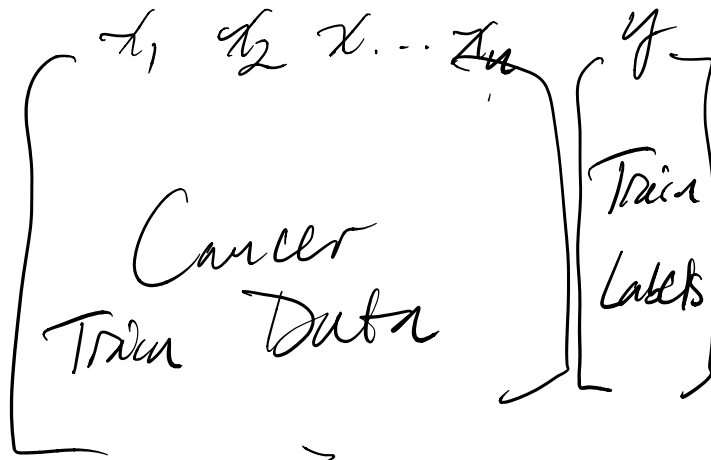 x₁ x₂ x... xₙ y
Cancer
Train Data
Train
Labels